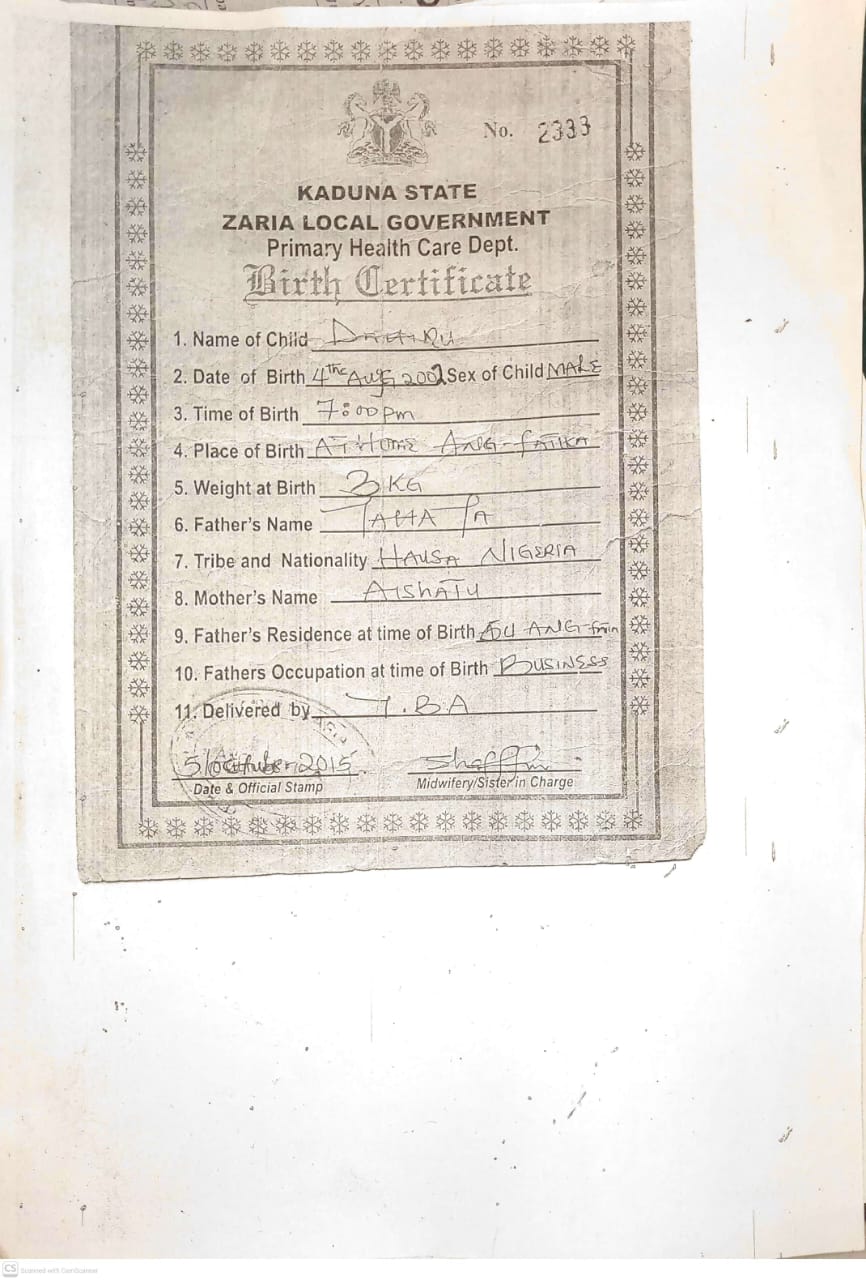 No. 2333
KADUNA STATE
ZARIA LOCAL GOVERNMENT
Primary Health Care Dept.
Birth Certificate
1. Name of Child DAHIRU
2. Date of Birth 4th Aug 2002 Sex of Child MALE
3. Time of Birth 7:00pm
4. Place of Birth AT HOME ANG-FATIKA
5. Weight at Birth 3KG
6. Father's Name
7. Tribe and Nationality HAUSA NIGERIA
8. Mother's Name AISHATU
9. Father's Residence at time of Birth ANG-
10. Fathers Occupation at time of Birth BUSINESS
11. Delivered by T.B.A
5/October/2015
Date & Official Stamp
Midwifery/Sister in Charge
CS Scanned with CamScanner